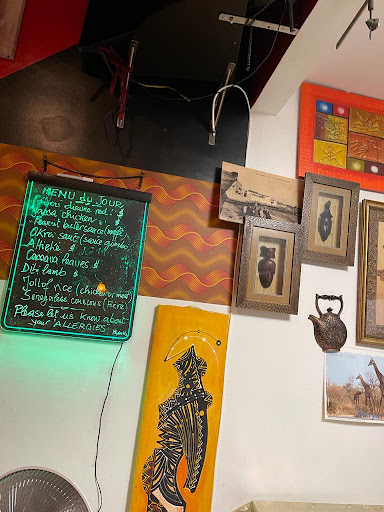 MENU du JOUR
Yassa chicken $
Peanut butter sauce (mafé)
Okra sauce (sauce gombo)
Attieké $
Cassava leaves $
Dibi lamb $
Jollof rice (chicken, meat
Senegalese couscous (
Please let us know about
your ALLERGIES